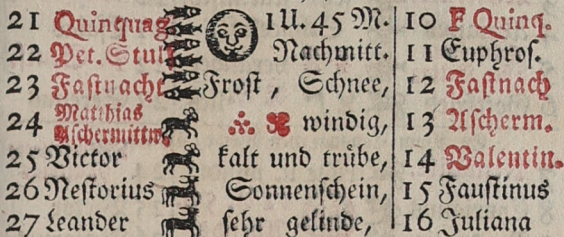 21 Quinquag 1 U. 45 M. 10 F Quinq.
22 Pet. Stul Nachmitt. 11 Euphros.
23 Fastnacht Frost, Schnee, 12 Fastnach
24 Matthias
Aschermittw. windig, 13 Ascherm.
25 Victor kalt und trübe, 14 Valentin.
26 Nestorius Sonnenschein, 15 Faustinus
27 Leander sehr gelinde, 16 Juliana